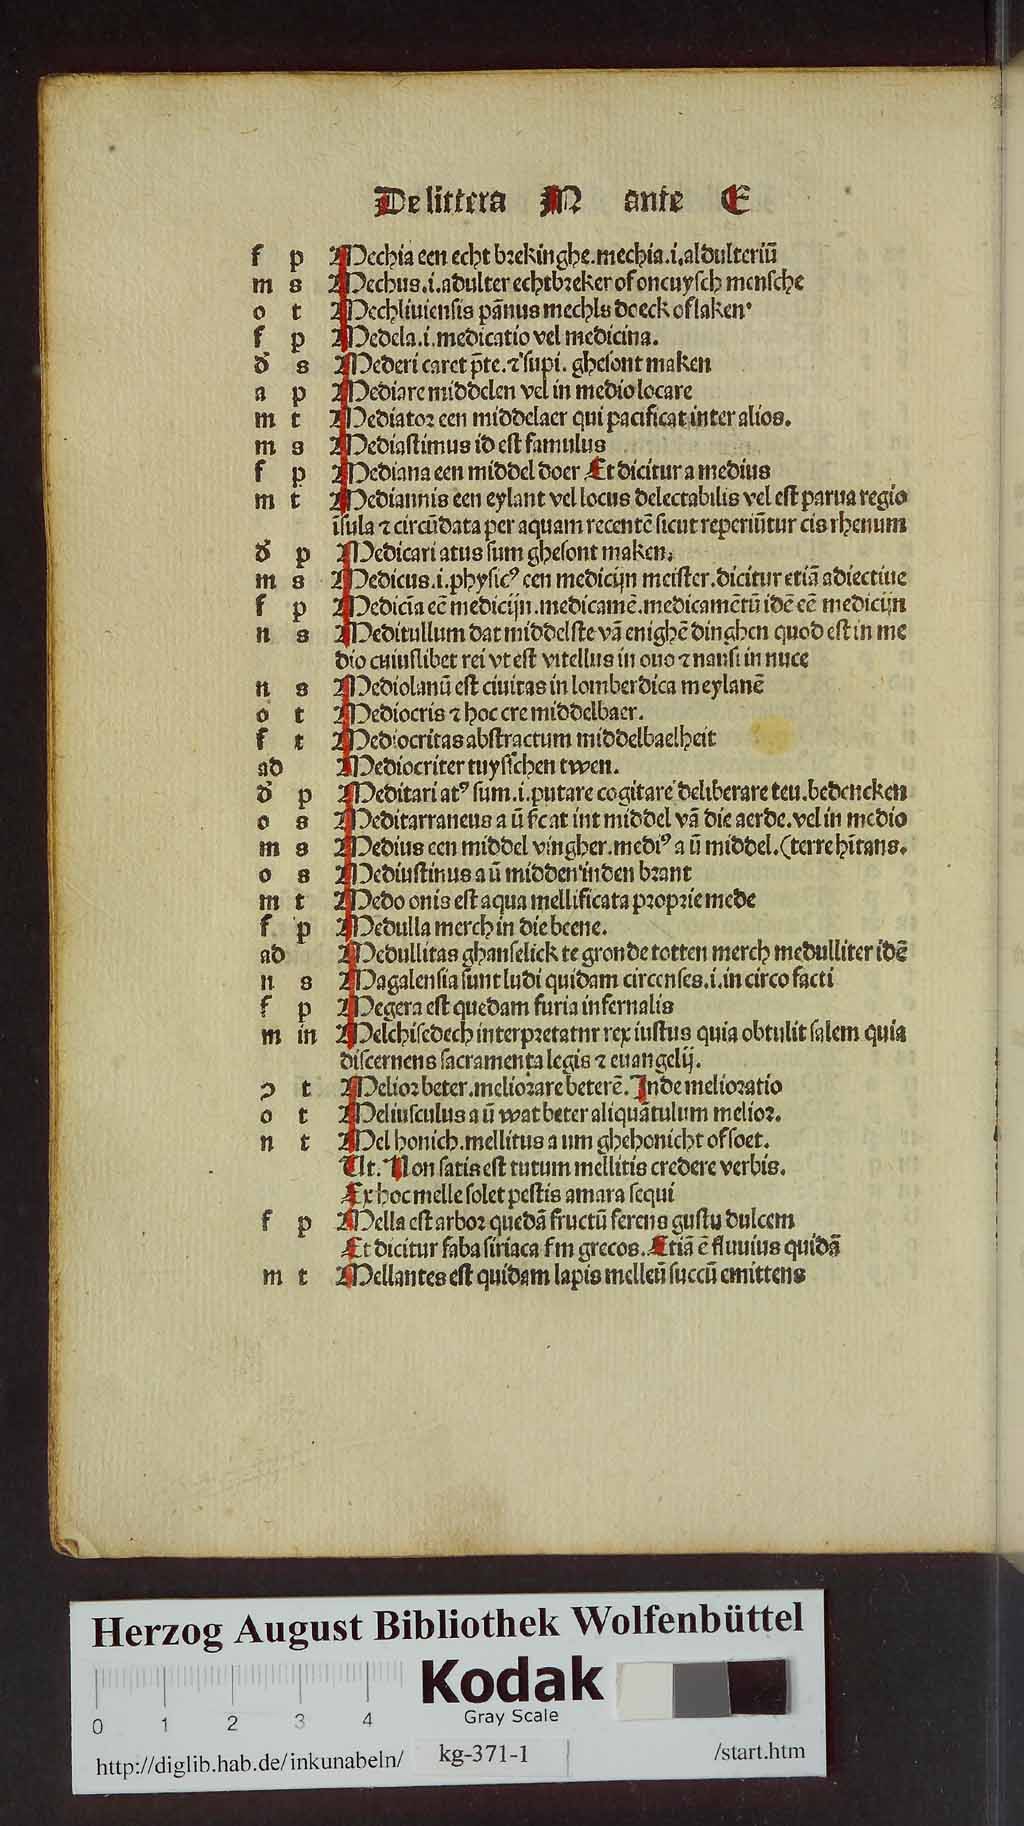 De littera M ante E
f p Mechia een echt brekinghe.mechia.i.aldulteriū
m s Mechus.i.adulter echtbreker of oncuysch mensche
o t Mechliuiensis pānus mechls doeck of laken
f p Medela.i.medicatio vel medicina.
d̉ s Mederi caret p̄te.⁊ supi. ghesont maken
a p Mediare middelen vel in medio locare
m t Mediator een middelaer qui pacificat inter alios.
m s Mediastimus id est famulus
f p Mediana een middel doer Et dicitur a medius
m t Mediannis een eylant vel locus delectabilis vel est parua regio
īsula ⁊ circūdata per aquam recentē sicut reperiūtur cis rhenum
d̉ p Medicari atus sum ghesont maken.
m s Medicus.i.physicꝰ een medicijn meister.dicitur etiā adiectiue
f p Medicīa eē medicijn.medicamē.medicamētū idē eē medicijn
n s Meditullum dat middelste vā enighē dinghen quod est in me
dio cuiuslibet rei vt est vitellus in ouo ⁊ nansi in nuce
n s Mediolanū est ciuitas in lomberdica meylanē
o t Mediocris ⁊ hoc cre middelbaer.
f t Mediocritas abstractum middelbaelheit
ad Mediocriter tuysschen twen.
d̉ p Meditari atꝰ sum.i.putare cogitare deliberare teu.bedencken
o s Meditarraneus a ū s̄cat int middel vā die aerde.vel in medio
m s Medius een middel vingher.mediꝰ a ū middel.(terre hītans.
o s Mediustinus a ū midden inden brant
m t Medo onis est aqua mellificata proprie mede
f p Medulla merch in die beene.
ad Medullitas ghanselick te gronde totten merch medulliter idē
n s Magalensia sunt ludi quidam circenses.i.in circo facti
f p Megera est quedam furia infernalis
m in Melchisedech interpretatnr rex iustus quia obtulit salem quia
discernens sacramenta legis ⁊ euangelij.
ↄ t Melior beter.meliorare beterē.Inde melioratio
o t Meliusculus a ū wat beter aliquātulum melior.
n t Mel honich.mellitus a um ghehonicht of soet.
Ut. Non satis est tutum mellitis credere verbis.
Ex hoc melle solet pestis amara sequi
f p Mella est arbor quedā fructū ferens gustu dulcem
Et dicitur faba siriaca fm grecos.Etiā ē fluuius quidā
m t Mellantes est quidam lapis melleū succū emittens
Herzog August Bibliothek Wolfenbüttel
Kodak
Gray Scale
0 1 2 3 4
http://diglib.hab.de/inkunabeln/ kg-371-1 /start.htm